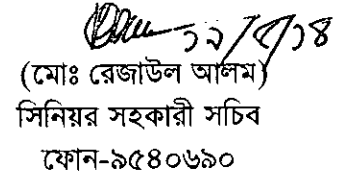 (মোঃ রেজাউল আলম)
সিনিয়র সহকারী সচিব
ফোন-৯৫৪০৬৯০